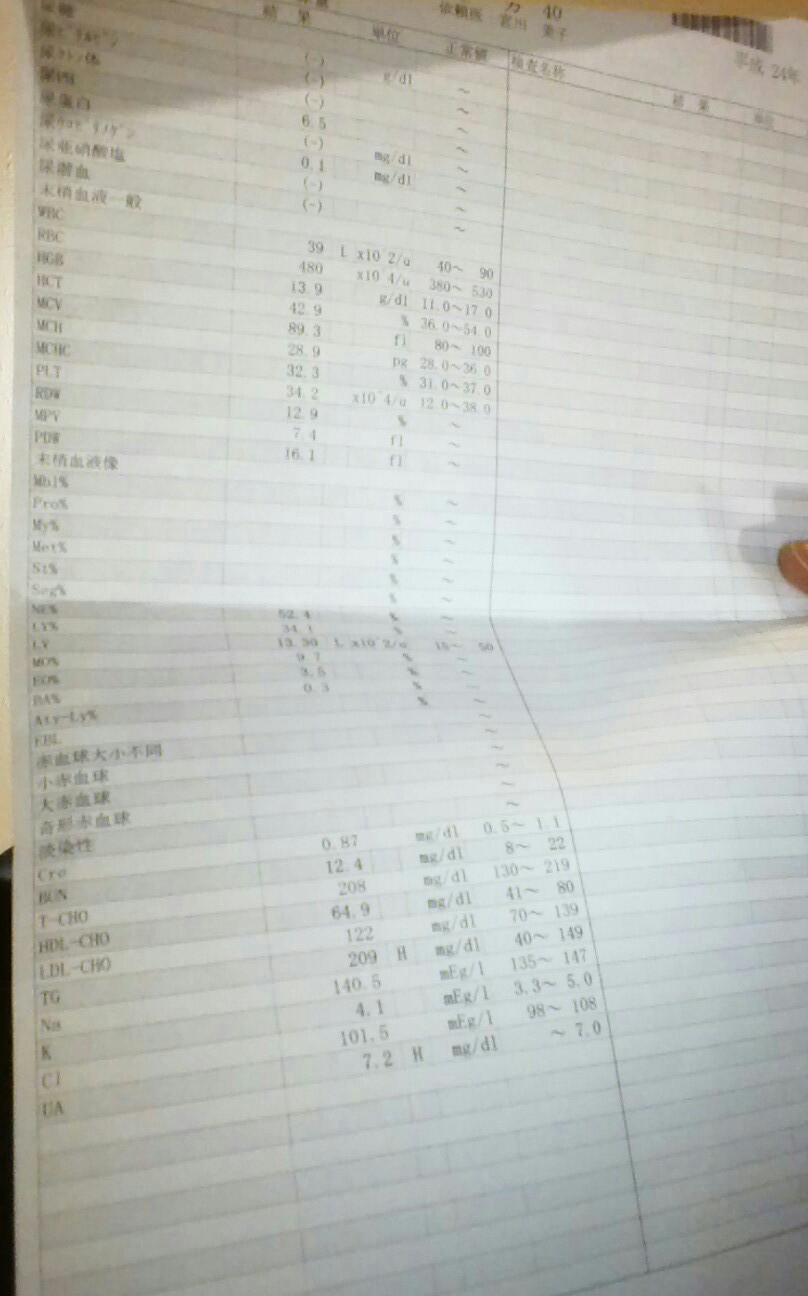 カ 40
依頼医 富川 美子
平成 24年
結 果 単位 正常値 検査名称 結 果 単位
尿糖 (-) g/dl ～
尿ﾋﾞﾘﾙﾋﾞﾝ (-) ～
尿ｹﾄﾝ体 (-) ～
尿PH 6.5 ～
尿蛋白 (-) mg/dl ～
尿ｳﾛﾋﾞﾘﾉｹﾞﾝ 0.1 mg/dl ～
尿亜硝酸塩 (-) ～
尿潜血 (-) ～
末梢血液一般
WBC 39 L x10^2/u 40～ 90
RBC 480 x10^4/u 380～ 530
HGB 13.9 g/dl 11.0～17.0
HCT 42.9 % 36.0～54.0
MCV 89.3 fl 80～ 100
MCH 28.9 pg 28.0～36.0
MCHC 32.3 % 31.0～37.0
PLT 34.2 x10^4/u 12.0～38.0
RDW 12.9 % ～
MPV 7.4 fl ～
PDW 16.1 fl ～
末梢血液像
Mbl% % ～
Pro% % ～
My% % ～
Met% % ～
St% % ～
Seg% % ～
NE% 52.4 % ～
LY% 34.1 % ～
LY 13.30 L x10^2/u 15～ 50
MO% 9.7 % ～
EO% 3.5 % ～
BA% 0.3 % ～
Aty-Ly% ～
EBL ～
赤血球大小不同 ～
小赤血球 ～
大赤血球 ～
奇形赤血球
淡染性
Cre 0.87 mg/dl 0.5～ 1.1
BUN 12.4 mg/dl 8～ 22
T-CHO 208 mg/dl 130～ 219
HDL-CHO 64.9 mg/dl 41～ 80
LDL-CHO 122 mg/dl 70～ 139
TG 209 H mg/dl 40～ 149
Na 140.5 mEg/l 135～ 147
K 4.1 mEg/l 3.3～ 5.0
Cl 101.5 mEg/l 98～ 108
UA 7.2 H mg/dl ～ 7.0